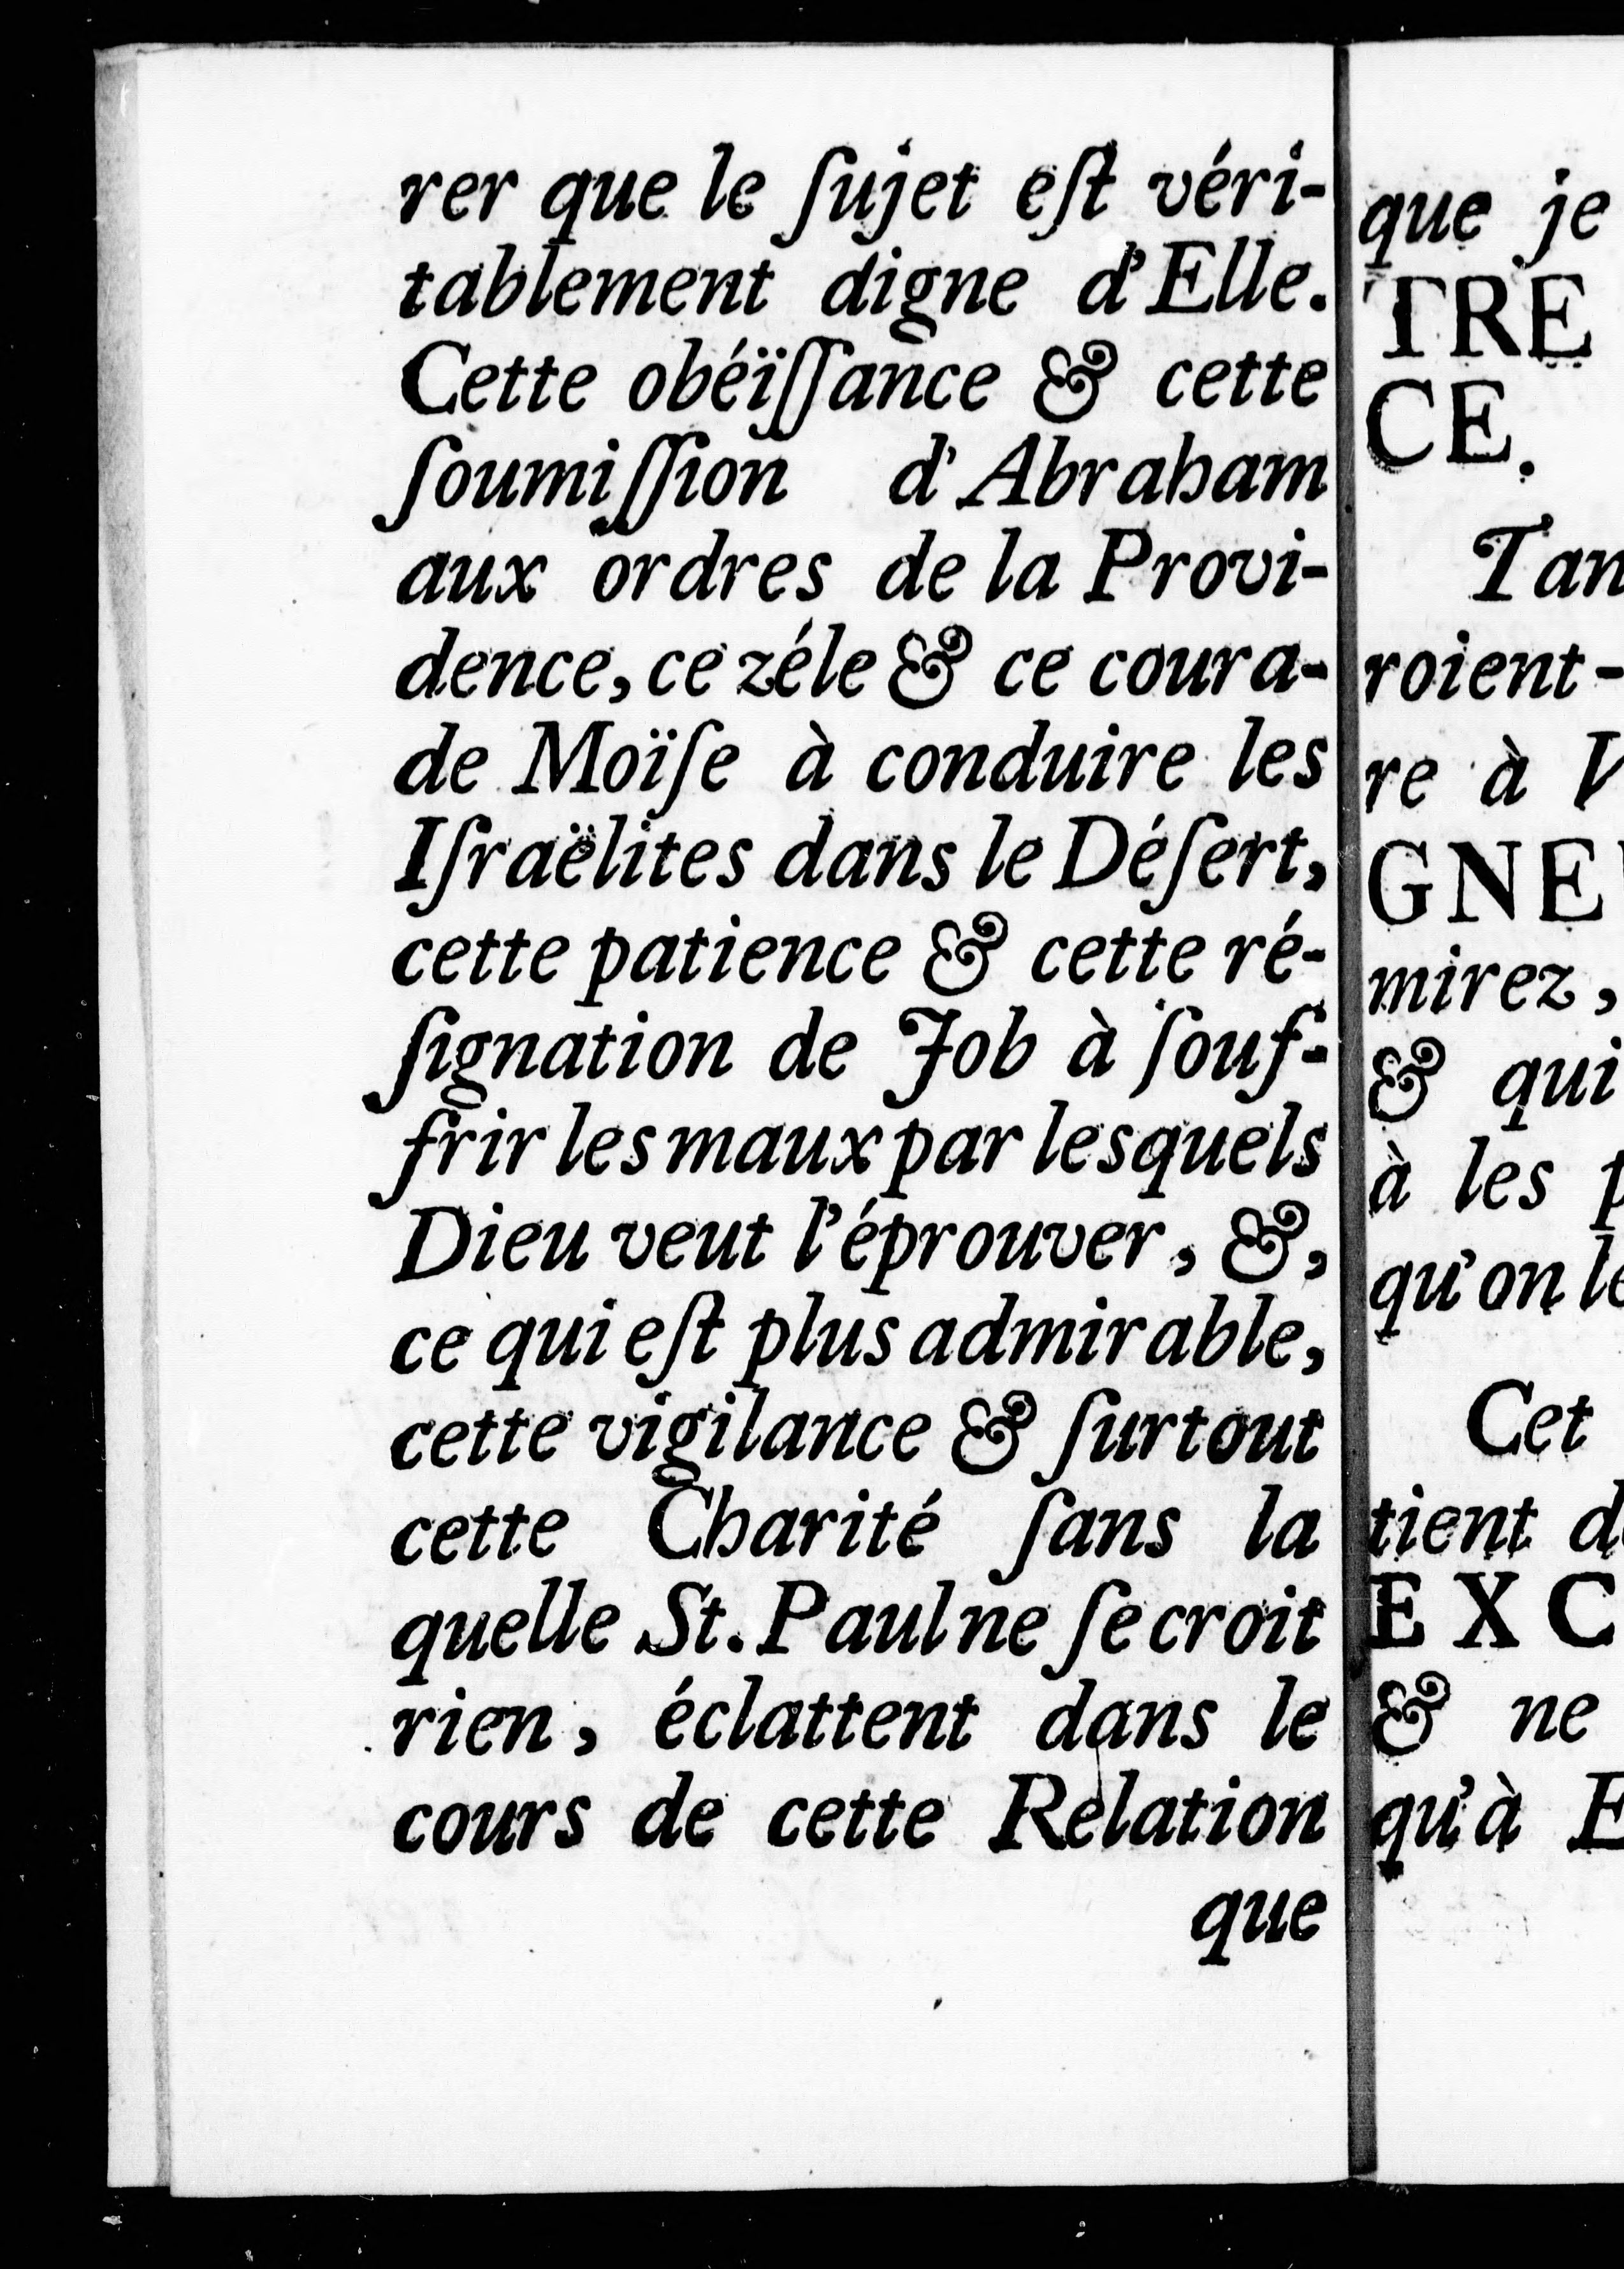 rer que le ſujet eſt véri-
tablement digne d'Elle.
Cette obéïſſance & cette
ſoumiſſion d'Abraham
aux ordres de la Provi-
dence, ce zéle & ce coura-
de Moïſe à conduire les
Iſraëlites dans le Déſert,
cette patience & cette ré-
ſignation de Job à ſouf-
frir les maux par lesquels
Dieu veut l'éprouver, &,
ce qui eſt plus admirable,
cette vigilance & ſurtout
cette Charité ſans la
quelle St. Paul ne ſe croit
rien, éclattent dans le
cours de cette Relation
que
que je
TRE
CE.
Tan
roient-
re à V
GNE
mirez,
& qui
à les p
qu'on le
Cet
tient d
EXC
& ne
qu'à E